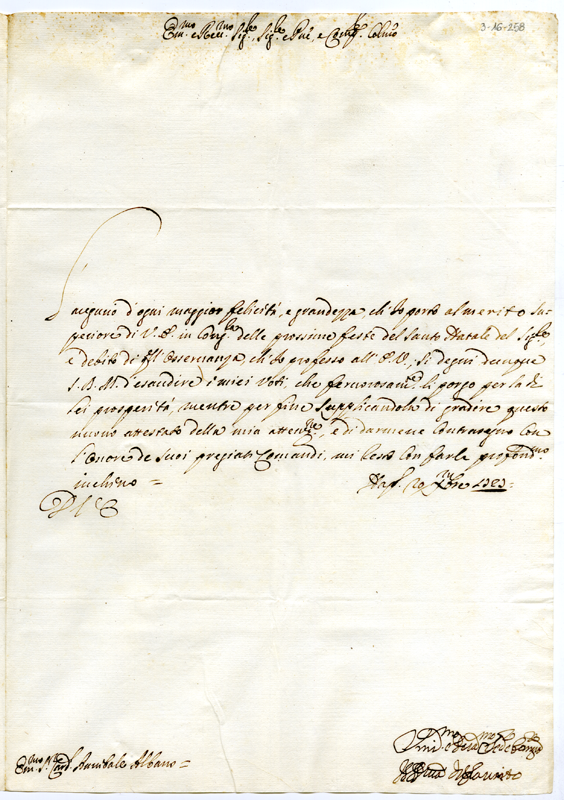 Em.mo e Rev.mo Sig.re, Sig.re e Pne, e Colmo
3-16-258
augurio d'ogni maggior felicità, e grandezza ch'Io porto al merito su-
periore di V. E. in Cong.ra delle prossime feste del Santo Natale del Sig.re,
è debito di q.ll'Osservanza, ch'Io professo all'E. V., si degni dunque
S. D. M. d'esaudire i miei Voti, che ferventam.te li porgo per la di
lei prosperità, mentre per fine supplicandola di gradire questo
nuovo attestato della mia attenz.ne, e di darmene Contrasegno con
l'onore de Suoi pregiati Comandi, mi resto con farle profond.mo
inchino =
D. V. E.
Em.mo S.r Card. Annibale Albano =